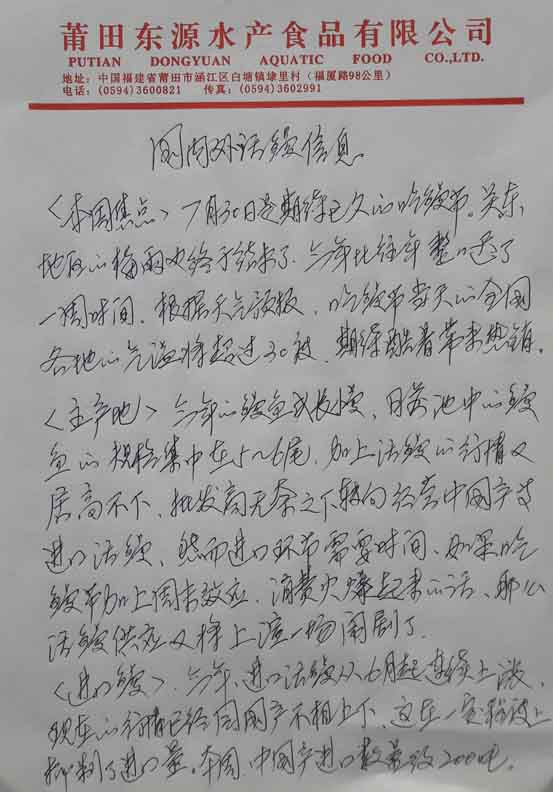 莆田东源水产食品有限公司
PUTIAN DONGYUAN AQUATIC FOOD CO.,LTD.
地址：中国福建省莆田市涵江区白塘镇埭里村（福厦路98公里）
电话：(0594)3600821 传真：(0594)3602991
国内外活鳗信息
〈本周焦点〉7月30日是期待已久的吃鳗节。关东
地区的梅雨也终于结束了．今年比往年整口迟了
一周时间．根据天气预报，吃鳗节当天的全国
各地的气温将超过30度，期待酷暑带来热销。
〈主产地〉今年的鳗鱼成长慢，目前池中的鳗
鱼的规格集中在5～6尾，加上活鳗的行情又
居高不下，批发商无奈之下转向经营中国产等
进口活鳗，然而进口环节需要时间、如果吃
鳗节加上周末效应，消费火爆起来的话、那么
活鳗供应又将上演一场闹剧了．
〈进口鳗〉．今年、进口活鳗从6月起连续上涨，
现在的行情已经同国产不相上下，这在一定程度上
抑制了进口量。本周，中国产进口数量约200吨。